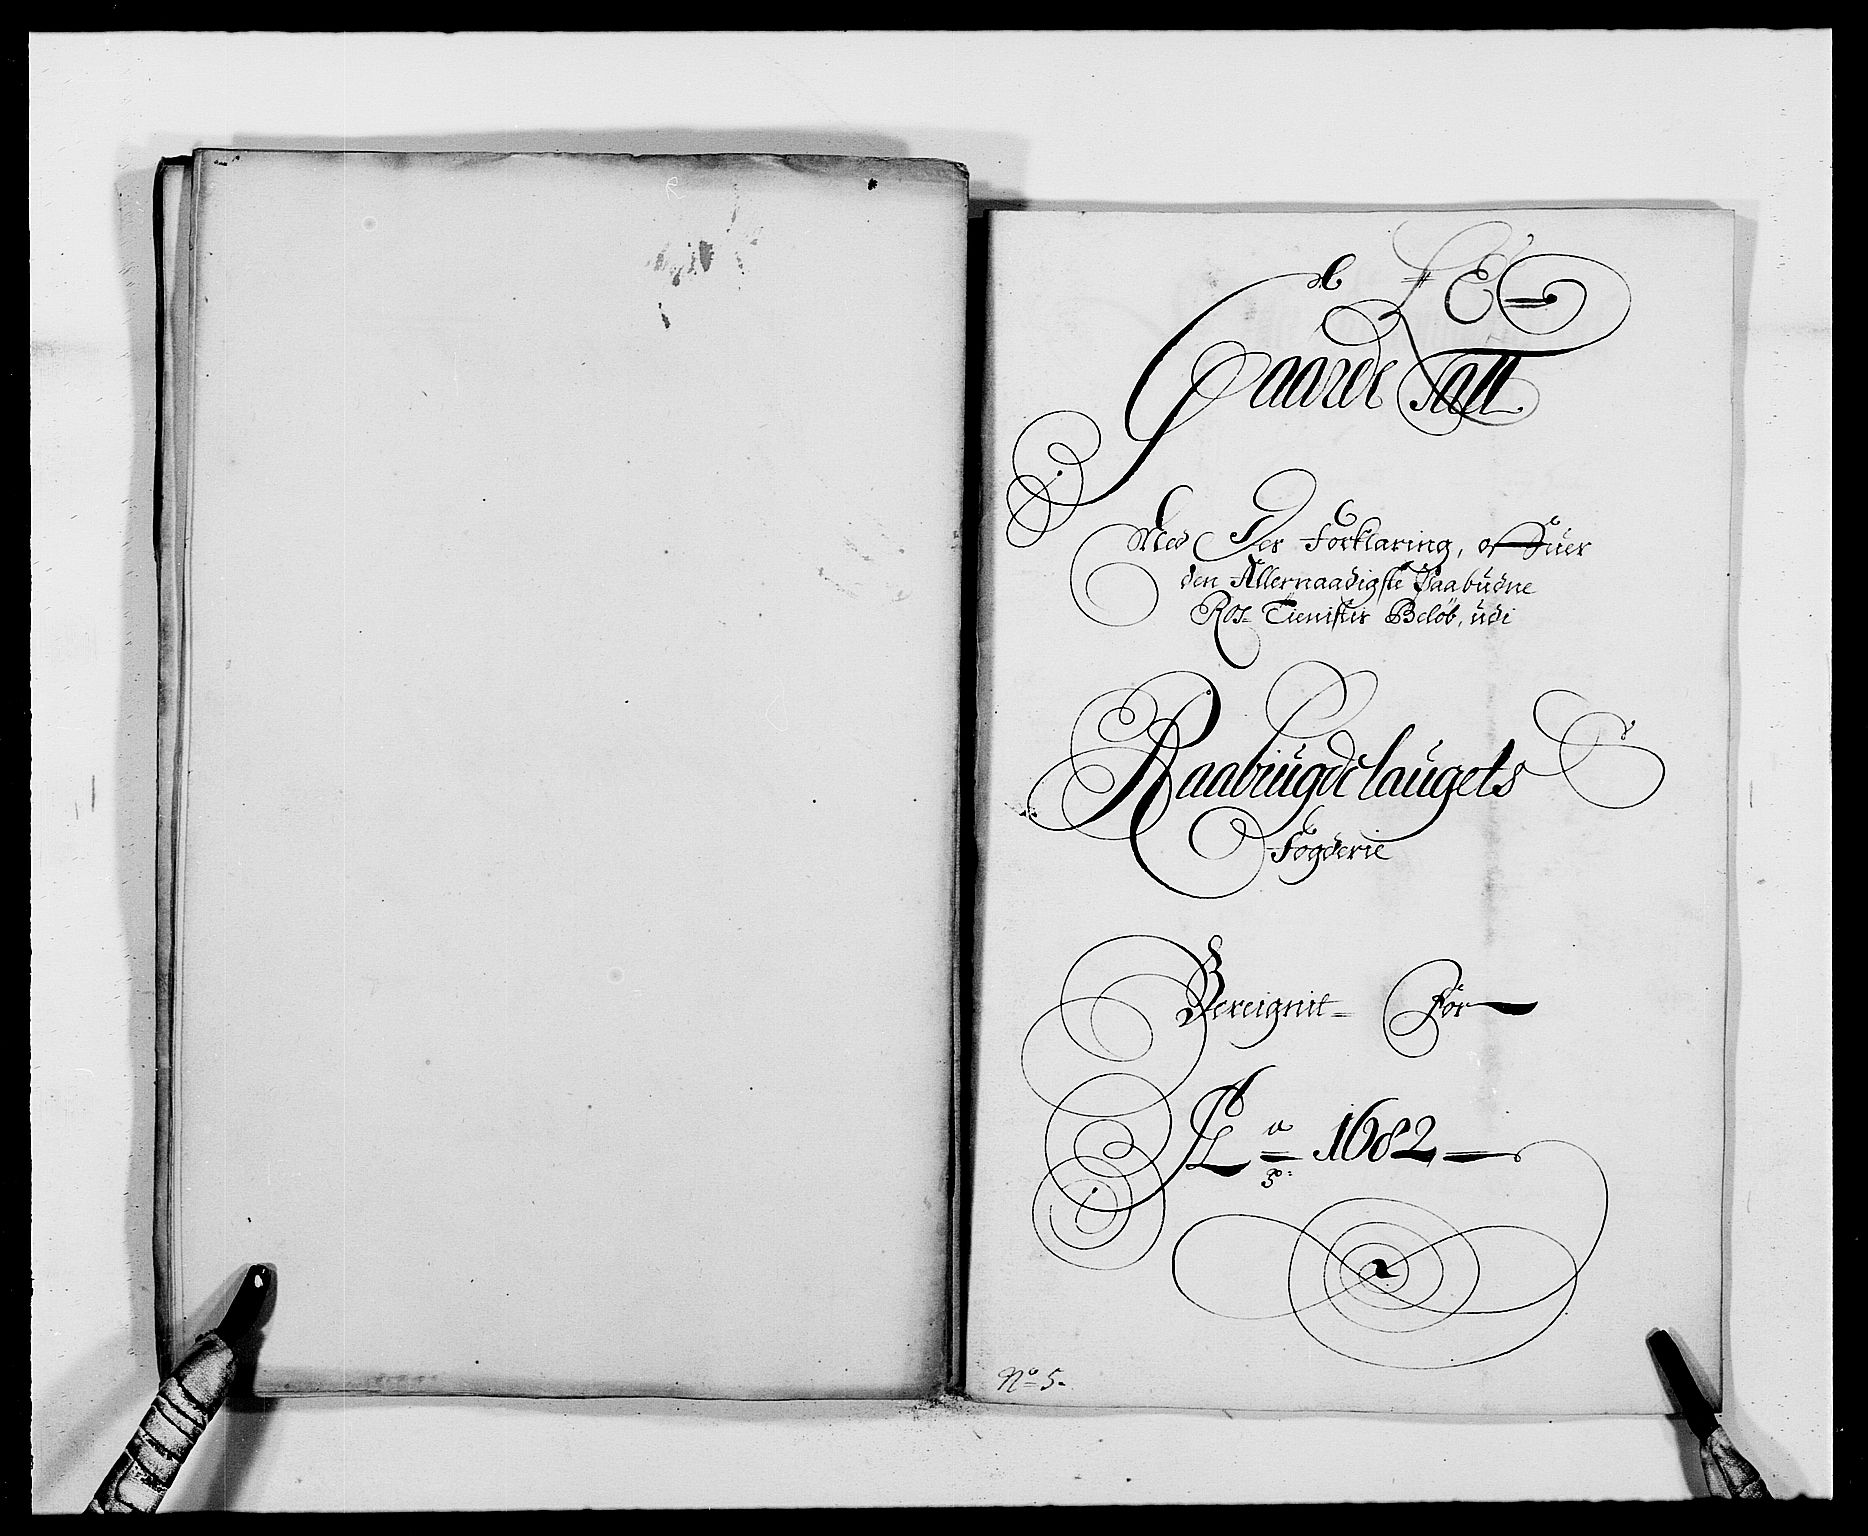 Gaarde Tall
Med Des Forklaring, of Huer
den Allernaadigste Paabudne
Ros= Tienistis Beløb, udi
Raabiugdelaugets
Fogderie
Bereignit= For
Ao 1682
No 5.